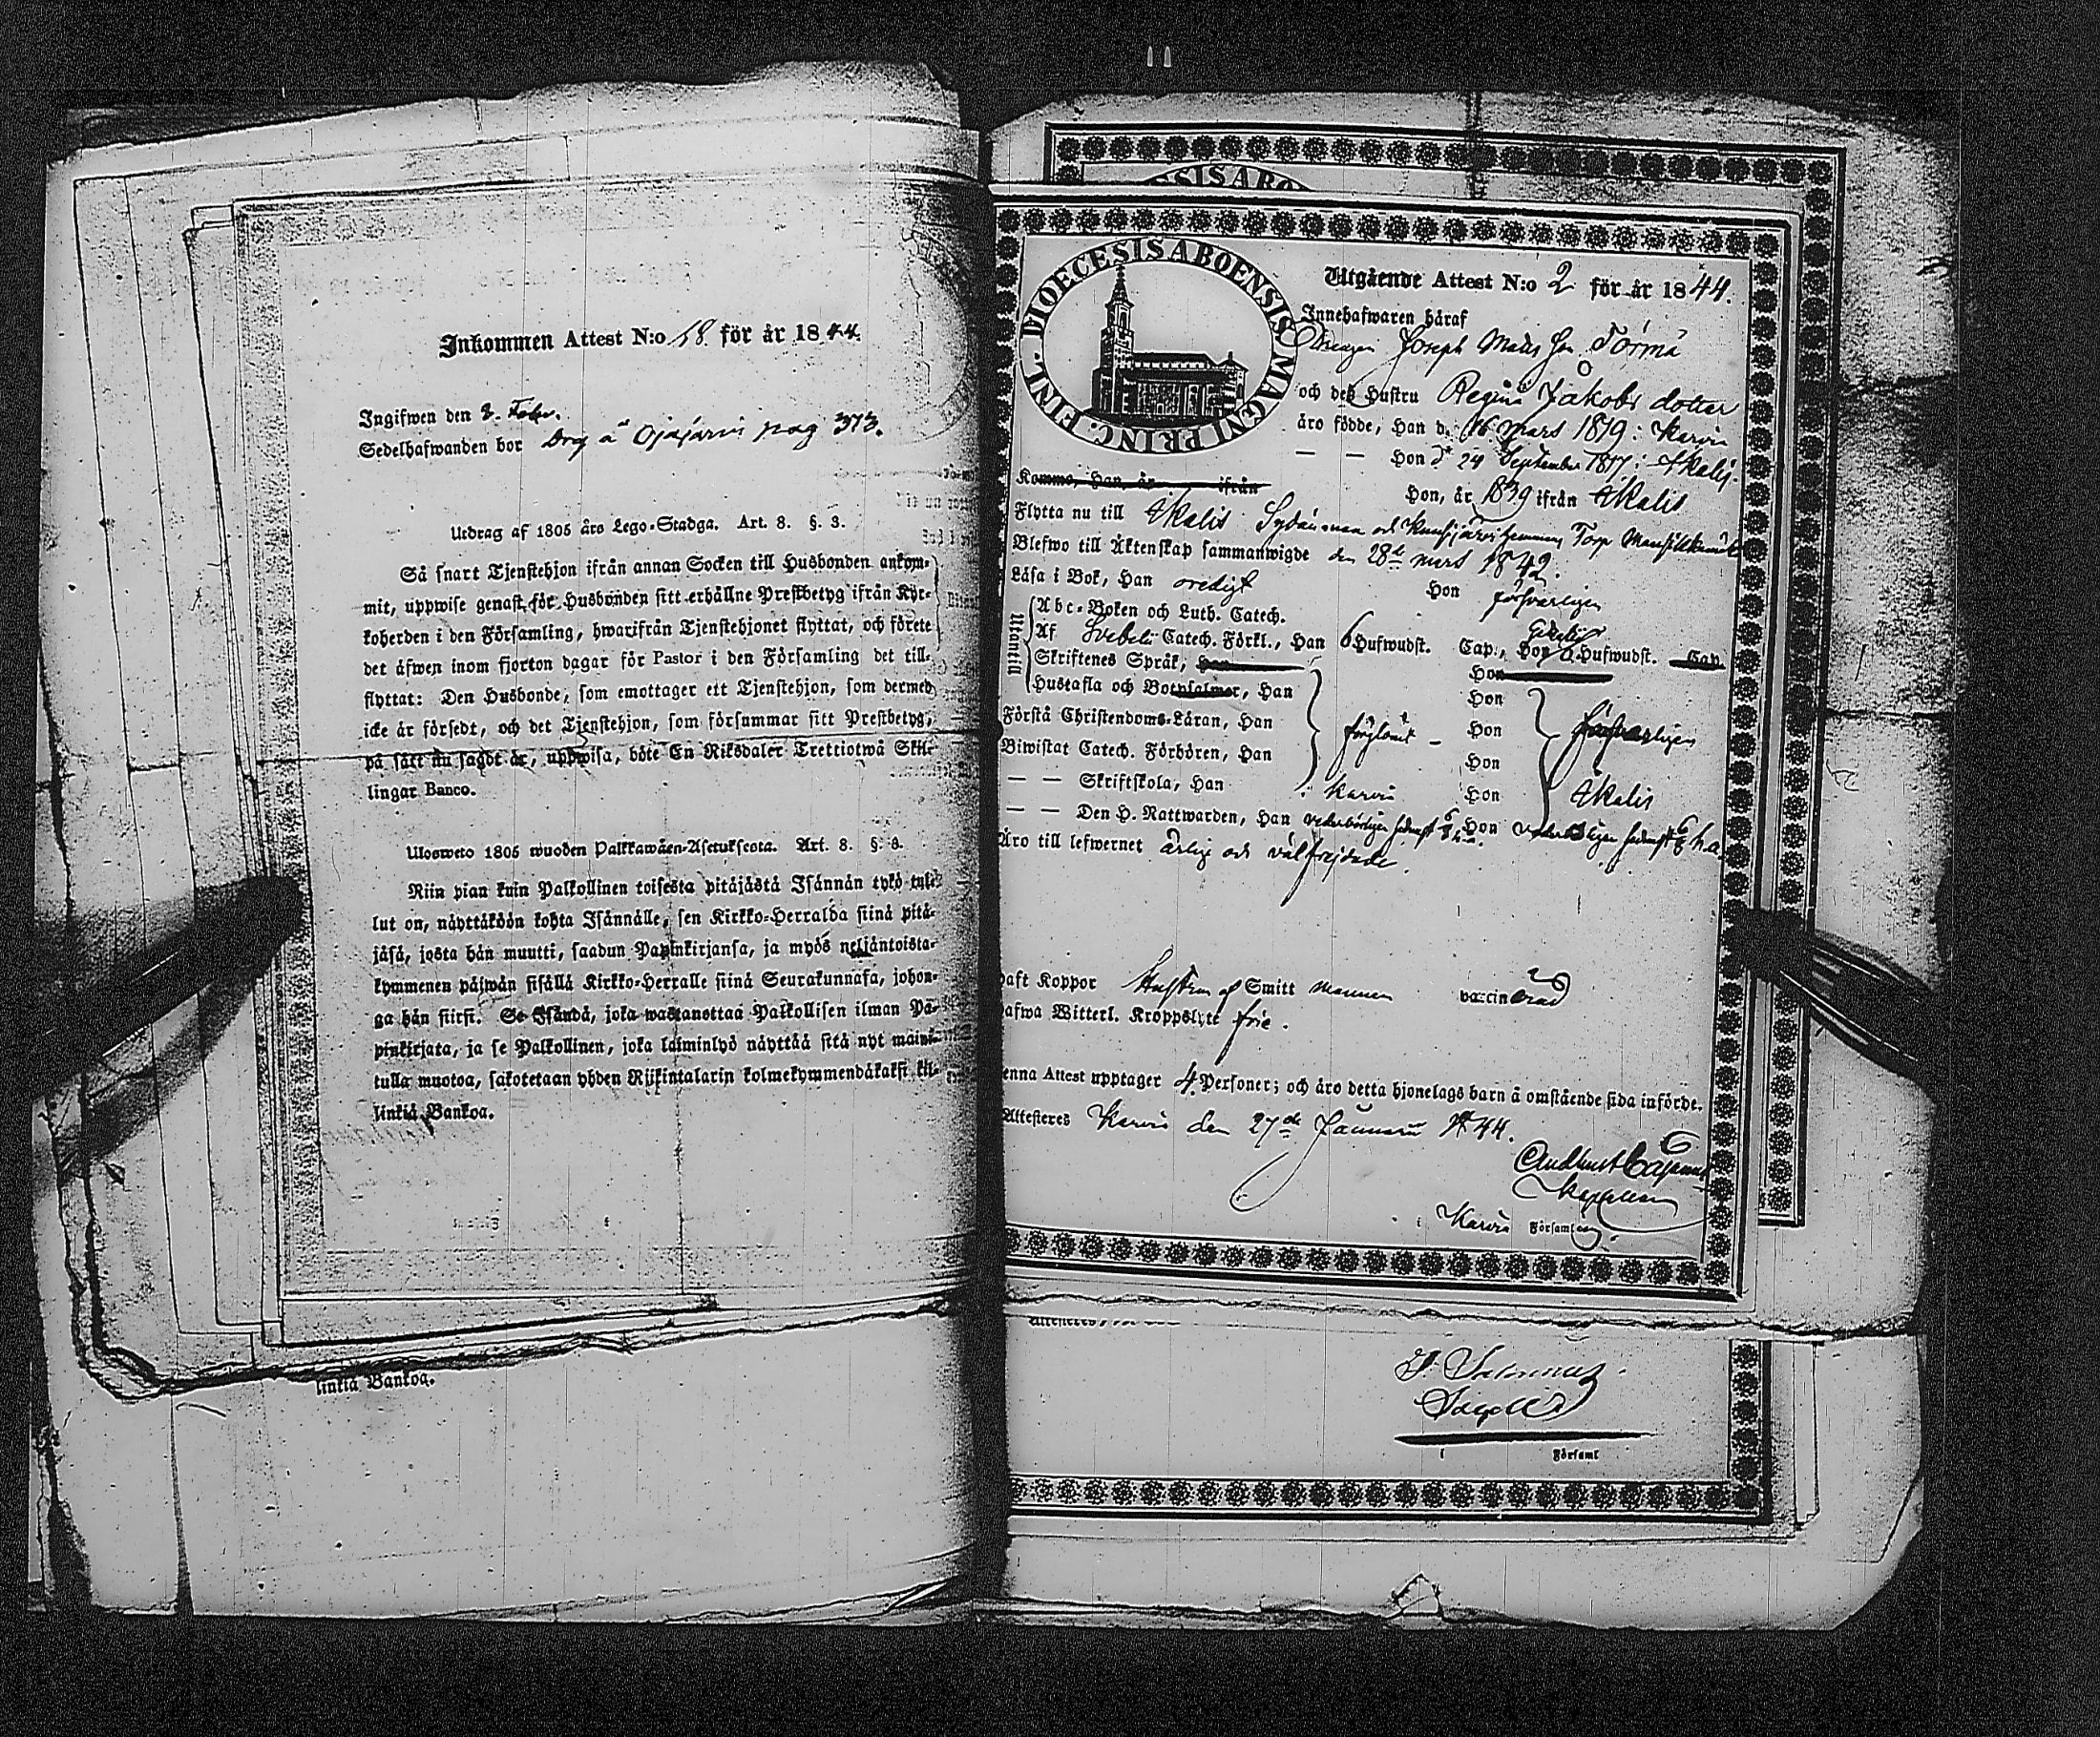 Inkommen Attest N:o 18 för år 1844.
Ingifwen den 8. Febr.
Sedelhafwanden bor Drg å Ojajärvi pag 373.
Utdrag af 1805 års Lego-Stadga. Art. 8. §. 3.
Så snart Tjenstehjon ifrån annan Socken till Husbonden ankom-
mit, uppwise genast för Husbonden sitt erhållne Prestbetyg ifrån Kyr-
koherden i den Församling, hwarifrån Tjenstehjonet flyttat, och förete
det äfwen inom fjorton dagar för Pastor i den Församling det till-
flyttat: Den Husbonde, som emottager ett Tjenstehjon, som dermed
icke är försedt, och det Tjenstehjon, som försummar sitt Prestbetyg,
på sätt nu sagdt är, uppwisa, böte En Riksdaler Trettiotwå Skil-
lingar Banco.
Ulosweto 1805 wuoden Palkkawäen-Asetuksesta. Art. 8. §. 3.
Niin pian kuin Palkollinen toisesta pitäjästä Isännän tykö tul-
lut on, näyttäköön kohta Isännälle, sen Kirkko-Herralda siinä pitä-
jäsä, josta hän muutti, saadun Papinkirjansa, ja myös neljäntoista-
kymmenen päiwän sisällä Kirkko-Herralle siinä Seurakunnasa, johon-
ga hän siirsi. Se Isändä, joka wastanottaa Palkollisen ilman Pa-
pinkirjata, ja se Palkollinen, joka laiminlyö näyttää sitä nyt maini-
tulla muotoa, sakotetaan yhden Riikintalarin kolmekymmendäkaksi kil-
linkiä Bankoa.
linkiä Bankoa.
DIOECESIS ABO
DIOECESIS ABOENSIS MAGNI PRINC. FINL.
Utgående Attest N:o 2 för år 1844.
Innehafwaren häraf
Drengen Joseph Mats Son Törmä
och deß Hustru Regina Jakobs dotter
äro födde, Han d. 16 Mars 1819: Karvia
— — Hon d. 24 September 1817: Ikalis.
Komne, Han, år ifrån Hon, år 1839 ifrån Ikalis
Flytta nu till Ikalis
Blefwo till Äktenskap sammanwigde den 28de mars 1842.
Läsa i Bok, Han oredigt Hon försvarligen
Utantill
Abc-Boken och Luth. Catech.
Af Svebelii Catech. Förkl., Han 6 Hufwudst. Cap., Hon 6 Hufwudst. Cap.
Skriftenes Språk, Han Hon
Hustafla och Botpsalmer, Han Hon
Förstå Christendoms-Läran, Han Hon försvarligen
Biwistat Catech. Förhören, Han Hon
— — Skriftskola, Han i Karvia Hon Ikalis
— — Den H. Nattwarden, Han vederbörligen Hon vederbörligen
Äro till lefwernet ärlige och välfrejdade.
haft Koppor Hustrun af Smitt mannen vaccinerad
hafwa Witterl. Kroppslyte frie.
enna Attest upptager 4 Personer; och äro detta hjonelags barn å omstående sida införde.
Attesteres Karvia den 27de Januarii 1844.
Kapellan
i Karvia Församling.
i Församl